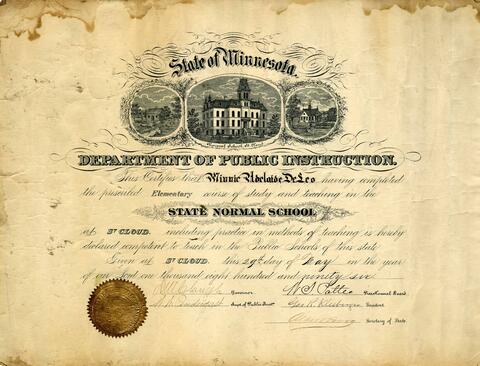 State of Minnesota.
Normal School St Cloud
DEPARTMENT OF PUBLIC INSTRUCTION.
This Certifies that Minnie Adelaide DeLeo having completed
the prescribed Elementary course of study and teaching in the
STATE NORMAL SCHOOL
at St CLOUD. including practice in methods of teaching is hereby
declared competent to Teach in the Public Schools of this state
Given at St CLOUD. this 29th day of May in the year
of our Lord one thousand eight hundred and ninety six
Governor
Supt. of Public Inst.
President
Secretary of State.